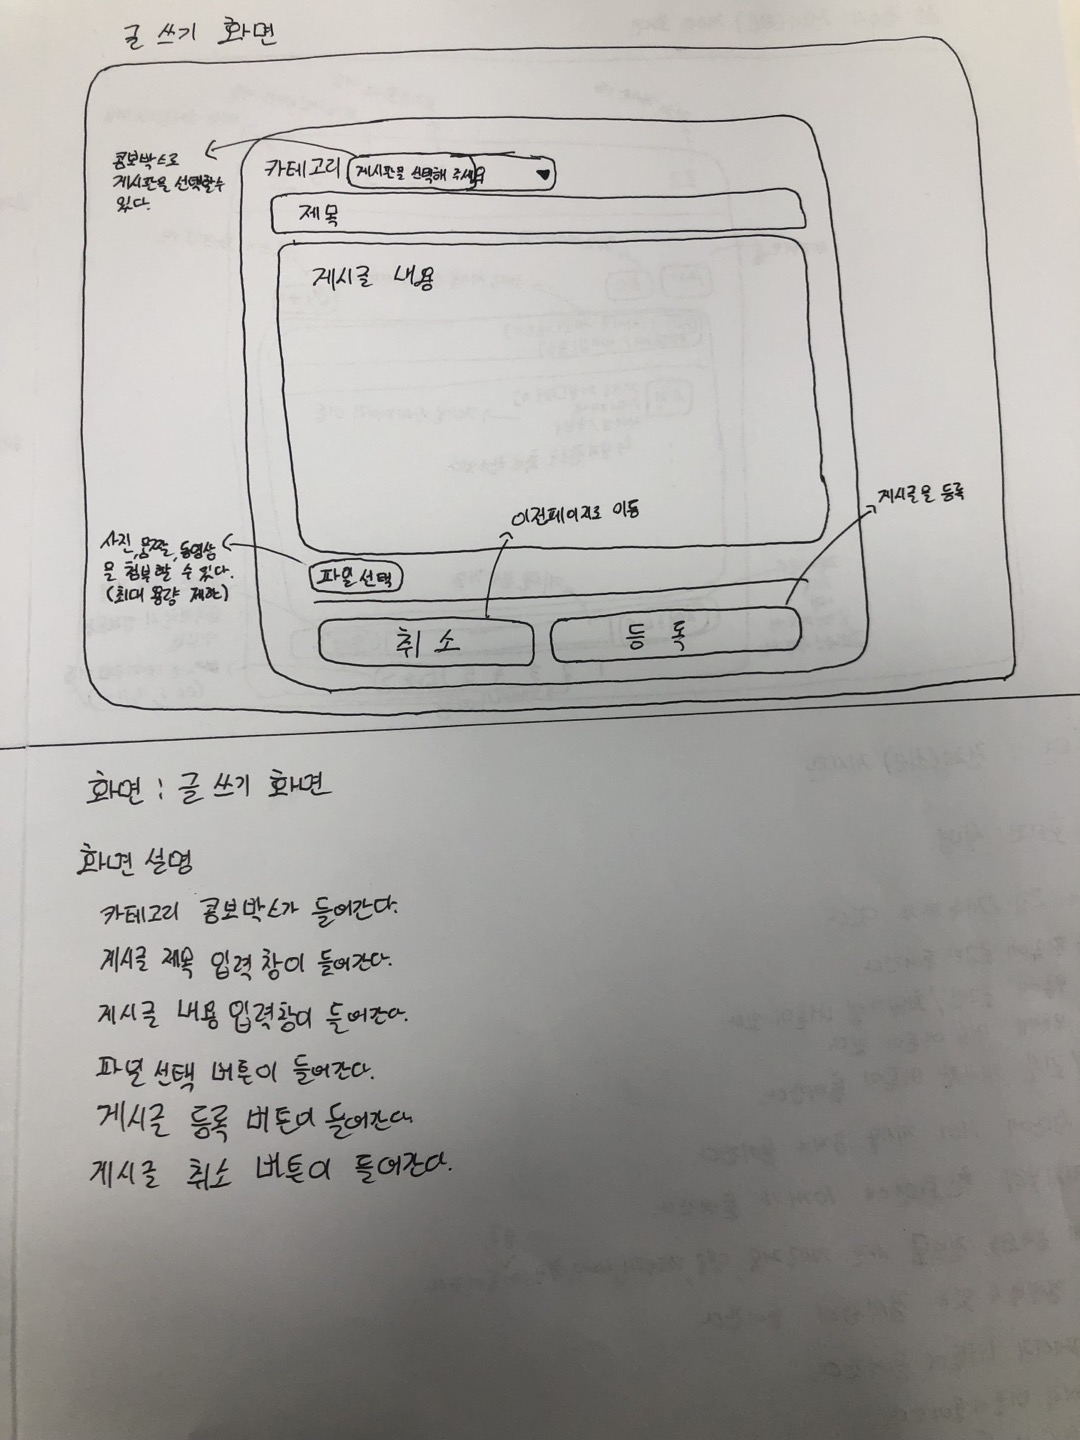 글 쓰기 화면
콤보박스로
게시판을 선택할수
있다.
카테고리 게시판을 선택해 주세요
제목
게시글 내용
이전페이지로 이동
게시글을 등록
사진, 움짤, 동영상
을 첨부할 수 있다.
(최대 용량 제한)
파일 선택
취소
등록
화면 : 글 쓰기 화면
화면 설명
카테고리 콤보박스가 들어간다.
게시글 제목 입력창이 들어간다.
게시글 내용 입력창이 들어간다.
파일 선택 버튼이 들어간다.
게시글 등록 버튼이 들어간다.
게시글 취소 버튼이 들어간다.